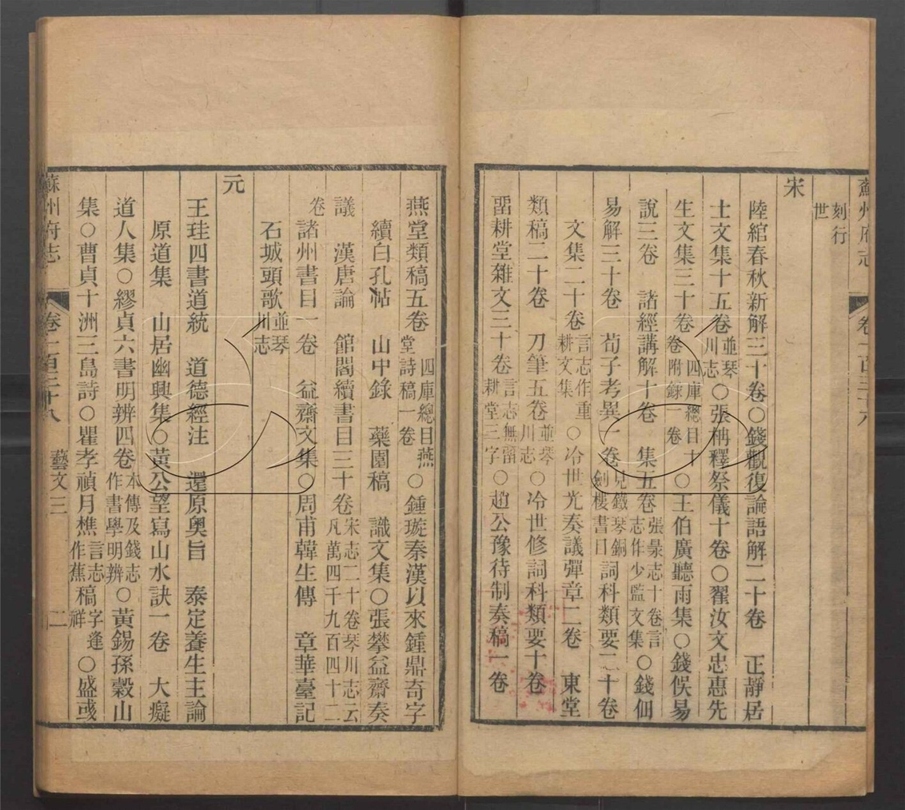 蘇州府志 卷一百三十八
刻行世
宋
陸綰春秋新解三十卷○錢觀復論語解二十卷 正靜居
士文集十五卷並琴川志○張栴釋祭儀十卷○翟汝文忠惠先
生文集三十卷四庫總目十卷附錄一卷○王伯廣聽雨集○錢俁易
說三卷 諸經講解十卷 集五卷張景志十卷言志作少監文集○錢佃
易解三十卷 荀子考異一卷見鐵琴銅劍樓書目 詞科類要二十卷
文集二十卷言志作重耕文集○冷世光奏議彈章二卷 東堂
類稿二十卷 刀筆五卷並琴川志○冷世修詞科類要十卷
畱耕堂雜文三十卷言志無畱耕堂三字○趙公豫待制奏稿一卷
燕堂類稿五卷四庫總目燕堂詩稿一卷○鍾璇秦漢以來鍾鼎奇字
續白孔帖 山中錄 藥園稿 識文集○張攀益齋奏
議 漢唐論 館閣續書目三十卷宋志二十卷琴川志云凡萬四千九百四十二卷
諸州書目一卷 益齋文集○周甫韓生傳 章華臺記
石城頭歌並琴川志
元
王珪四書道統 道德經注 還原奧旨 泰定養生主論
原道集 山居幽興集○黃公望寫山水訣一卷 大癡
道人集○繆貞六書明辨四卷本傳及錢志作書學明辨○黃錫孫穀山
集○曹貞十洲三島詩○瞿孝禎月樵言志作蕉稿字逢祥○盛彧
蘇州府志 卷一百三十八 藝文三 二